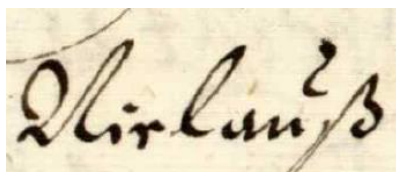 Niclauß